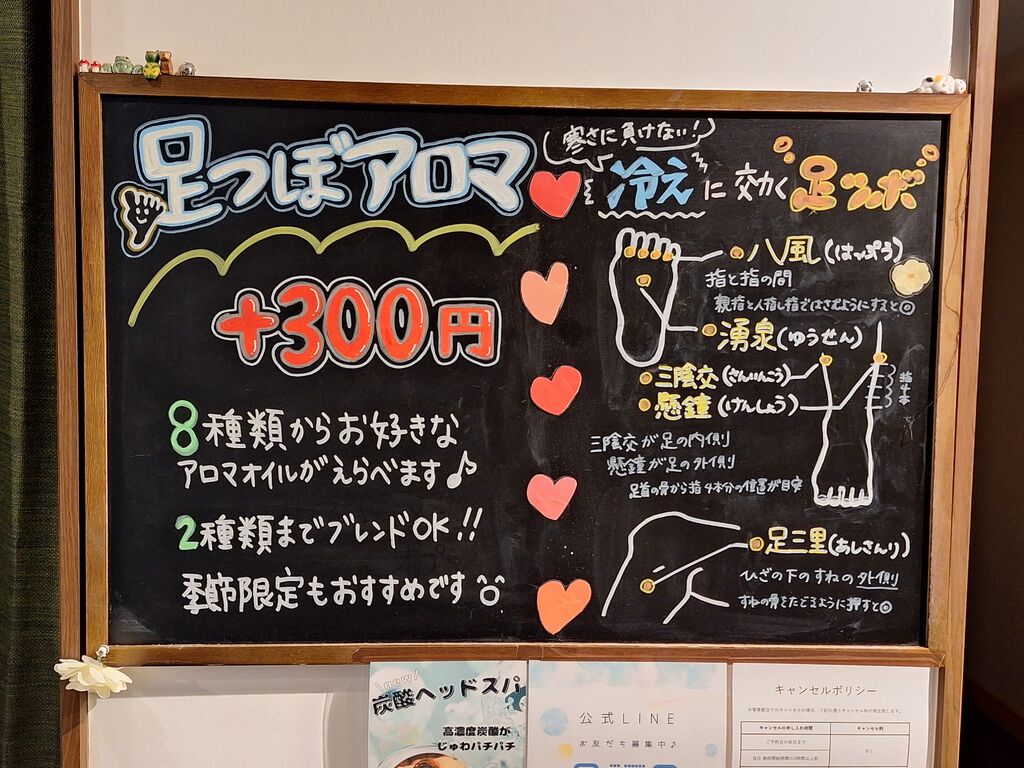 足つぼアロマ
+300円
8種類からお好きな
アロマオイルがえらべます♪
2種類までブレンドOK!!
季節限定もおすすめです
寒さに負けない!
冷えに効く足ツボ
八風(はっぷう)
指と指の間
親指と人指し指ではさむようにすると◎
湧泉(ゆうせん)
三陰交(さんいんこう)
懸鐘(けんしょう)
指4本
三陰交が足の内側
懸鐘が足の外側
足首の骨から指4本分の位置が目安
足三里(あしさんり)
ひざの下のすねの外側
すねの骨をたどるように押すと◎
\new/
炭酸ヘッドスパ
高濃度炭酸が
じゅわパチパチ
公式LINE
お友だち募集中♪
キャンセルポリシー
お客様都合でのキャンセルの場合、下記の通りキャンセル料が発生致します。
キャンセルの申し入れ時間 キャンセル料
ご予約日の前日まで なし
当日 施術開始時間の2時間以上前